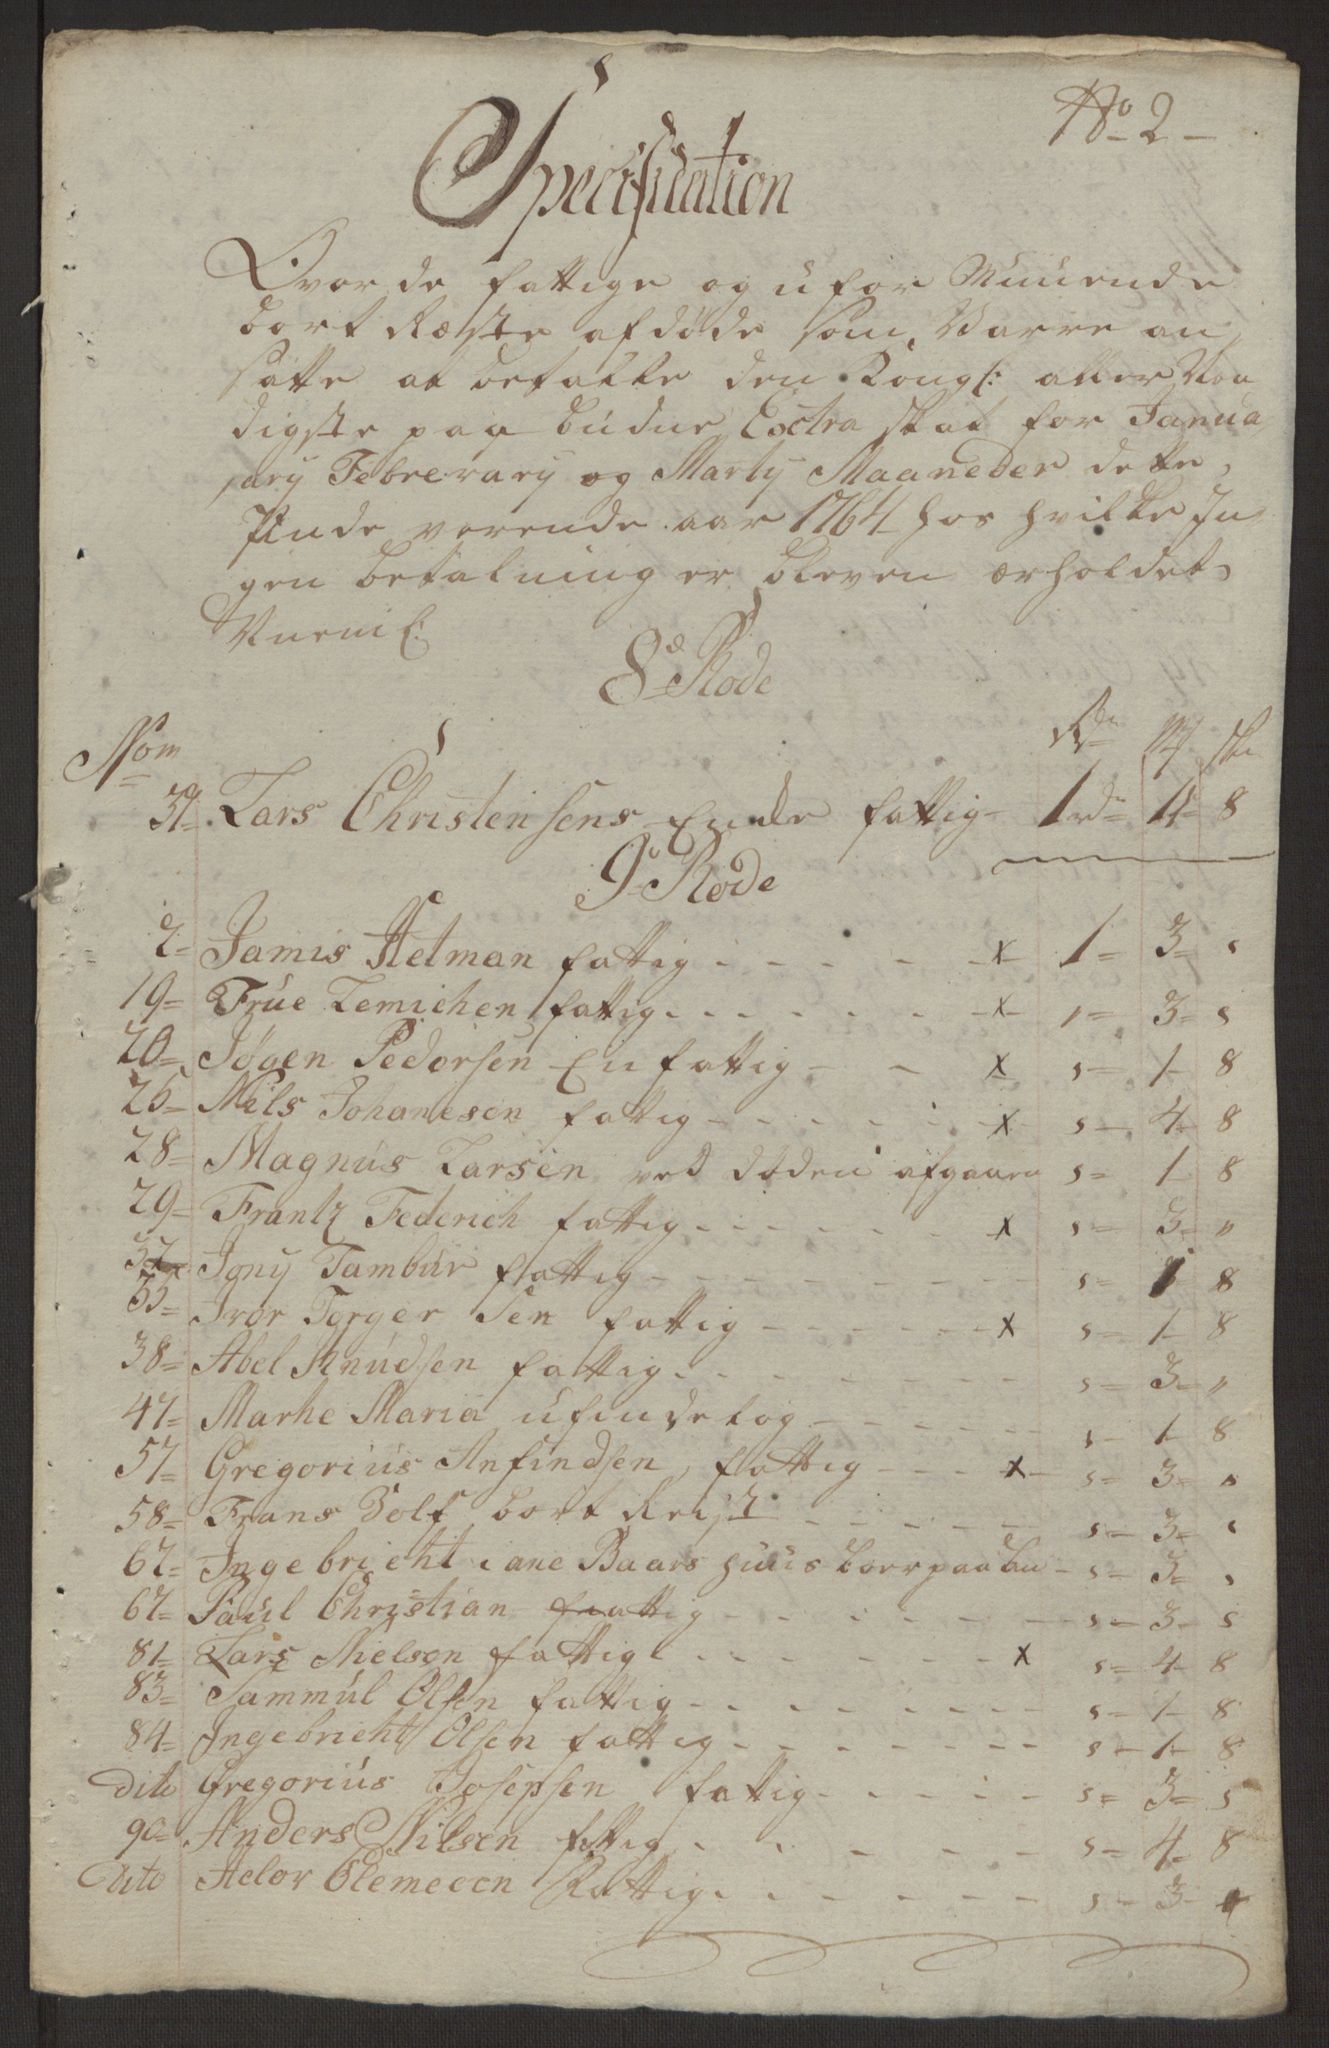 No 2
Specification
Over de fattige og ufor Muuende
bort Ræste afdøde som Varre an
satte at betalle den Kongl: aller Naa
digste paa budne Extra skat for Janua
ary Febrerary og Marty Maaneder dette
inde verende aar 1764 hos hvilke In
gen betalning er bleven erholdet
Nueml:
8de Rode
Nom Rdr M sk
39 Lars Christensens Enke fattig 1rd 4 8
9de Rode
2 Jamis Hetman fattig x 1 3 s
19 Frue Lemichen fattig x 1 3 s
20 Jögen Pedersen En fattig x s 1 8
25 Nils Johanesen fattig x s 4 8
28 Magnus Larsen ved döden afgaaen s 1 8
29 Frantz Federich fattig x s 3 "
Jony Tambur fattig s 1 8
35 Iver Torger Sen fattig x s 1 8
38 Abel Knudsen fattig s 3 "
47 Marhe Maria ufindelog s 1 8
57 Gregorius Anfindsen fattig x s 3 s
58 Frans Volf bort Reist s 3 s
67 Ingebricht iane Baars huus s 3 s
67 Paul Christian fattig s 3 s
81 Lars Nielsen fattig x s 4 8
83 Sammul Olsen fattig s 1 8
84 Ingebricht Olsen fattig s 1 8
dito Gregorius Josepsen fattig s 3 s
90 Anders Nilsen fattig s 4 8
dito Helor Clemeeen Fattig s 3